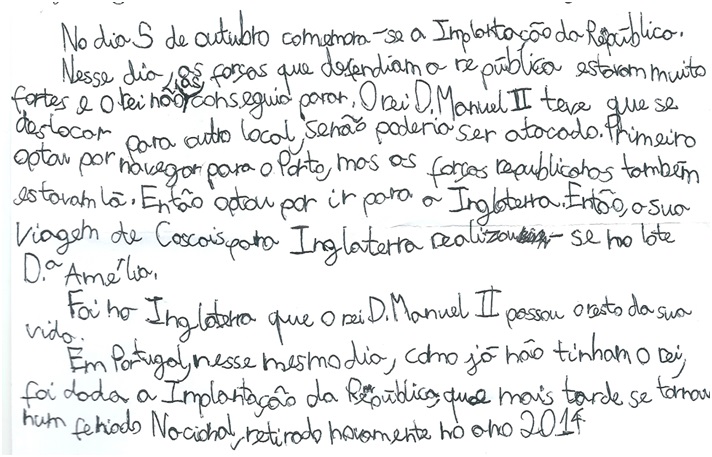 No dia 5 de outubro comemora-se a Implantação da República.
Nesse dia, as forças que defendiam a república estavam muito
fortes e o rei não conseguia parar. O rei D. Manuel II teve que se
deslocar para outro local, senão poderia ser atacado. Primeiro
optou por navegar para o Porto, mas as forças republicanas também
estavam lá. Então optou por ir para a Inglaterra. Então, a sua
viagem de Cascais para Inglaterra realizou-se no Iate
D.ª Amélia.
Foi na Inglaterra que o rei D. Manuel II passou o resto da sua
vida.
Em Portugal, nesse mesmo dia, como já não tinham o rei,
foi dada a Implantação da República, que mais tarde se tornou
num feriado Nacional, retirado novamente no ano 2014